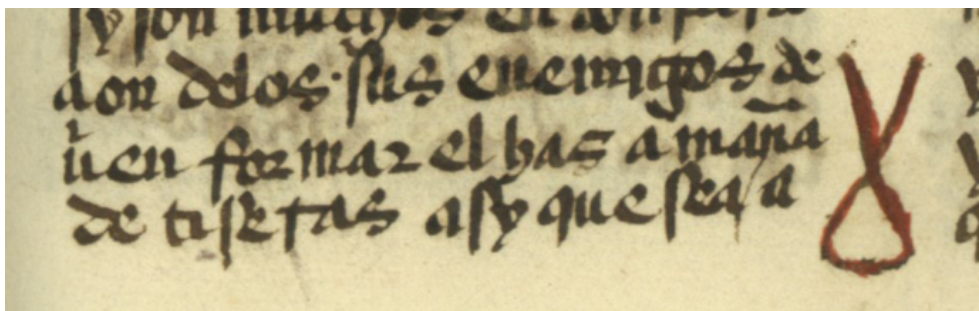 sy son muchos en conpara
çion delos sus enemigos de
uen formar el has a mañã
de tiseras asy que sea a